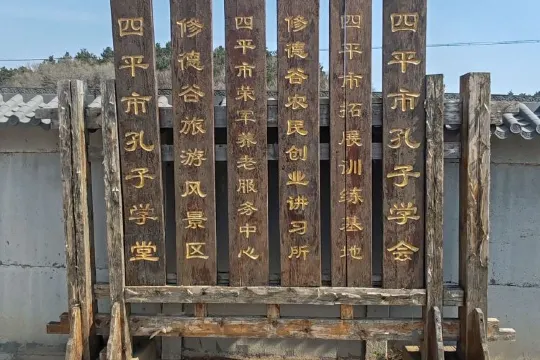 四平市孔子学堂
修德谷旅游风景区
四平市荣军养老服务中心
修德谷农民创业讲习所
四平市拓展训练基地
四平市孔子学会